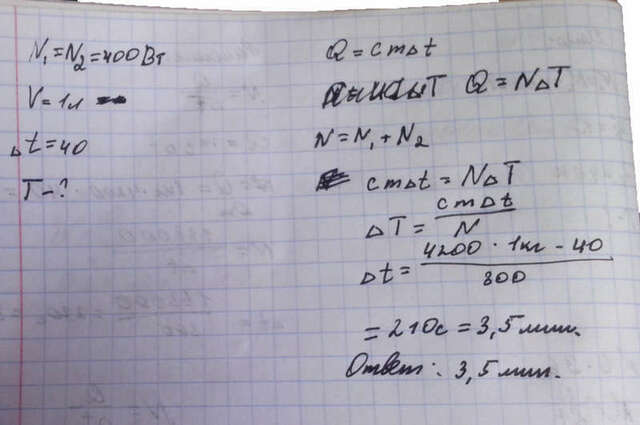 N₁=N₂=400Вт
V=1л
Δt=40
T-?
Q=cmΔt
Q=NΔT
N=N₁+N₂
cmΔt=NΔT
ΔT=cmΔt/N
Δt=4200·1кг-40/800
=210с=3,5мин.
Ответ: 3,5мин.